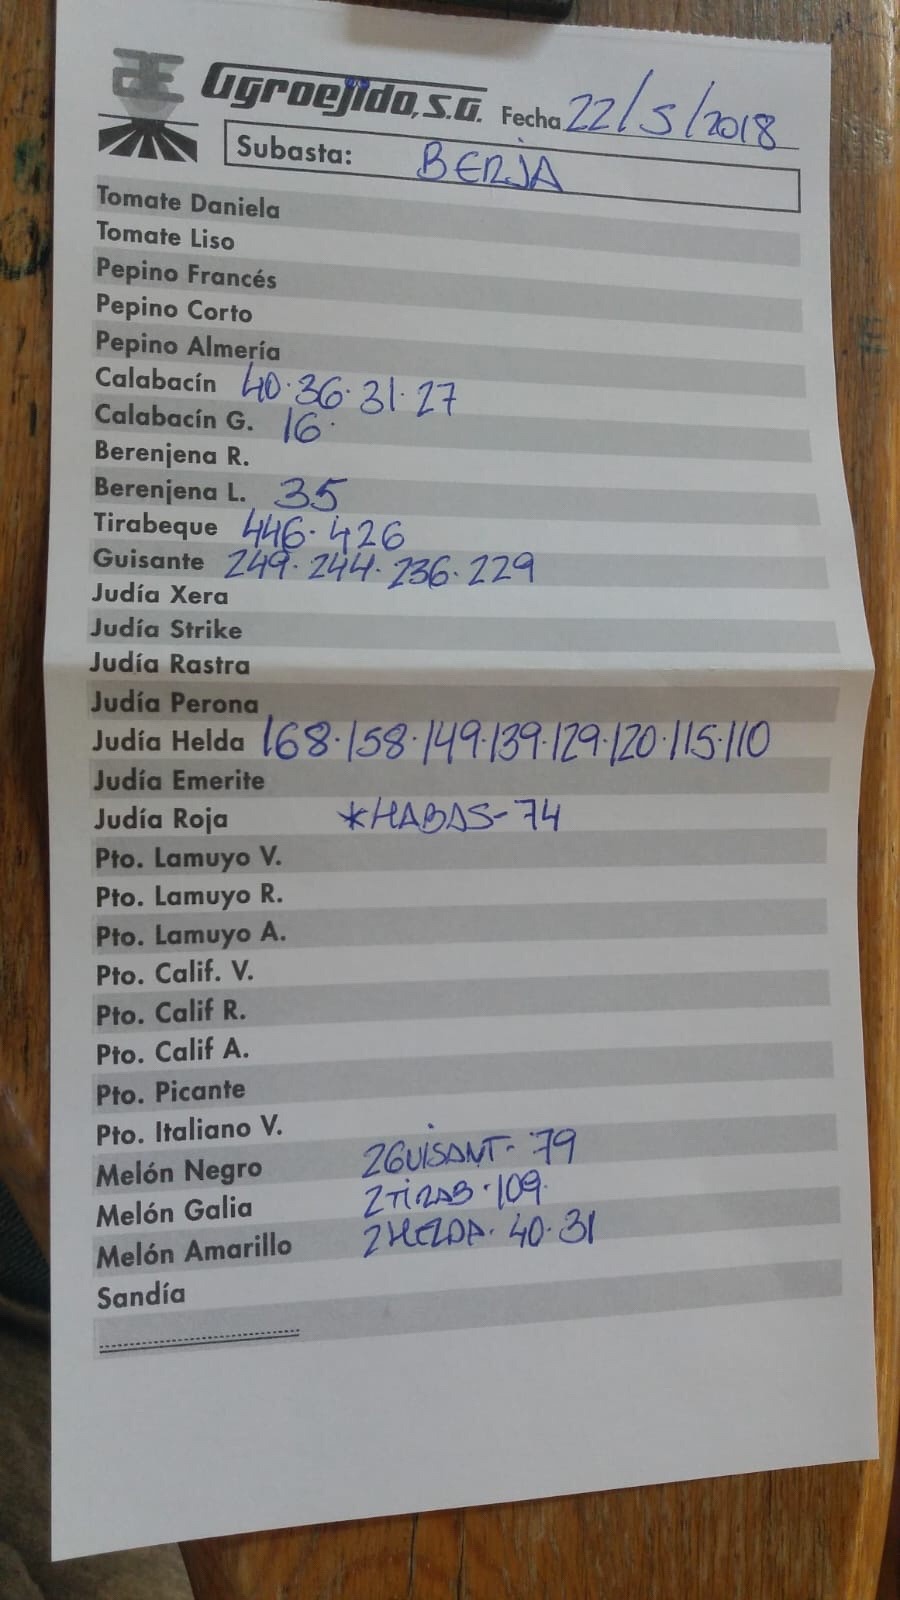 Agroejido, S.A. Fecha 22/5/2018
Subasta: BERJA
Tomate Daniela
Tomate Liso
Pepino Francés
Pepino Corto
Pepino Almería
Calabacín 40.36.31.27
Calabacín G. 16
Berenjena R.
Berenjena L. 35
Tirabeque 446.426
Guisante 249.244.236.229
Judía Xera
Judía Strike
Judía Rastra
Judía Perona
Judía Helda 168.158.149.139.129.120.115.110
Judía Emerite
Judía Roja *HABAS-74
Pto. Lamuyo V.
Pto. Lamuyo R.
Pto. Lamuyo A.
Pto. Calif. V.
Pto. Calif R.
Pto. Calif A.
Pto. Picante
Pto. Italiano V.
Melón Negro 2GUISANT- 79
Melón Galia 2TIRAB.109.
Melón Amarillo 2HELDA. 40.31
Sandía